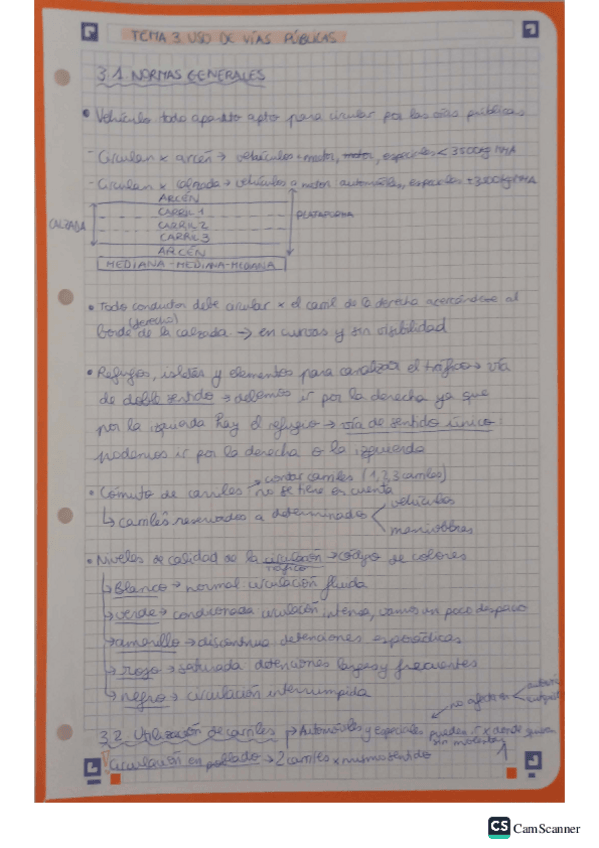 TEMA 3. USO DE VÍAS PÚBLICAS
3.1 NORMAS GENERALES
• Vehículo todo aparato apto para circular por las vías públicas
- Circulan x arcén → vehículos motor, especiales < 3500kg MMA
- Circulan x calzada → vehículos a motor automóviles, especiales +3500kg MMA
ARCÉN
CARRIL 1
CALZADA CARRIL 2 PLATAFORMA
CARRIL 3
ARCÉN
MEDIANA - MEDIANA - MEDIANA
• Todo conductor debe circular x el carril de la derecha acercándose al
(derecho)
borde de la calzada → en curvas y sin visibilidad
• Refugios, isletas y elementos para canalizar el tráfico → vía
de doble sentido → debemos ir por la derecha ya que
por la izquierda hay el refugio → vía de sentido único:
podemos ir por la derecha o la izquierda
→ contar carriles (1,2,3 carriles)
• Cómputo de carriles no se tiene en cuenta
↳ carriles reservados a determinados < vehículos
maniobras
• Niveles de calidad de la circulación → código de colores
tráfico
↳ Blanco → normal circulación fluida
↳ verde → condicionada circulación intensa, vamos un poco despacio
↳ amarillo → discontinua detenciones esporádicas
↳ rojo → saturada detenciones largas y frecuentes
↳ negro → circulación interrumpida
no afecta en <
3.2. Utilización de carriles → Automóviles y especiales puedes ir x donde quieras
sin molestar
! Circulación en poblado → 2 carriles x mismo sentido
CS CamScanner